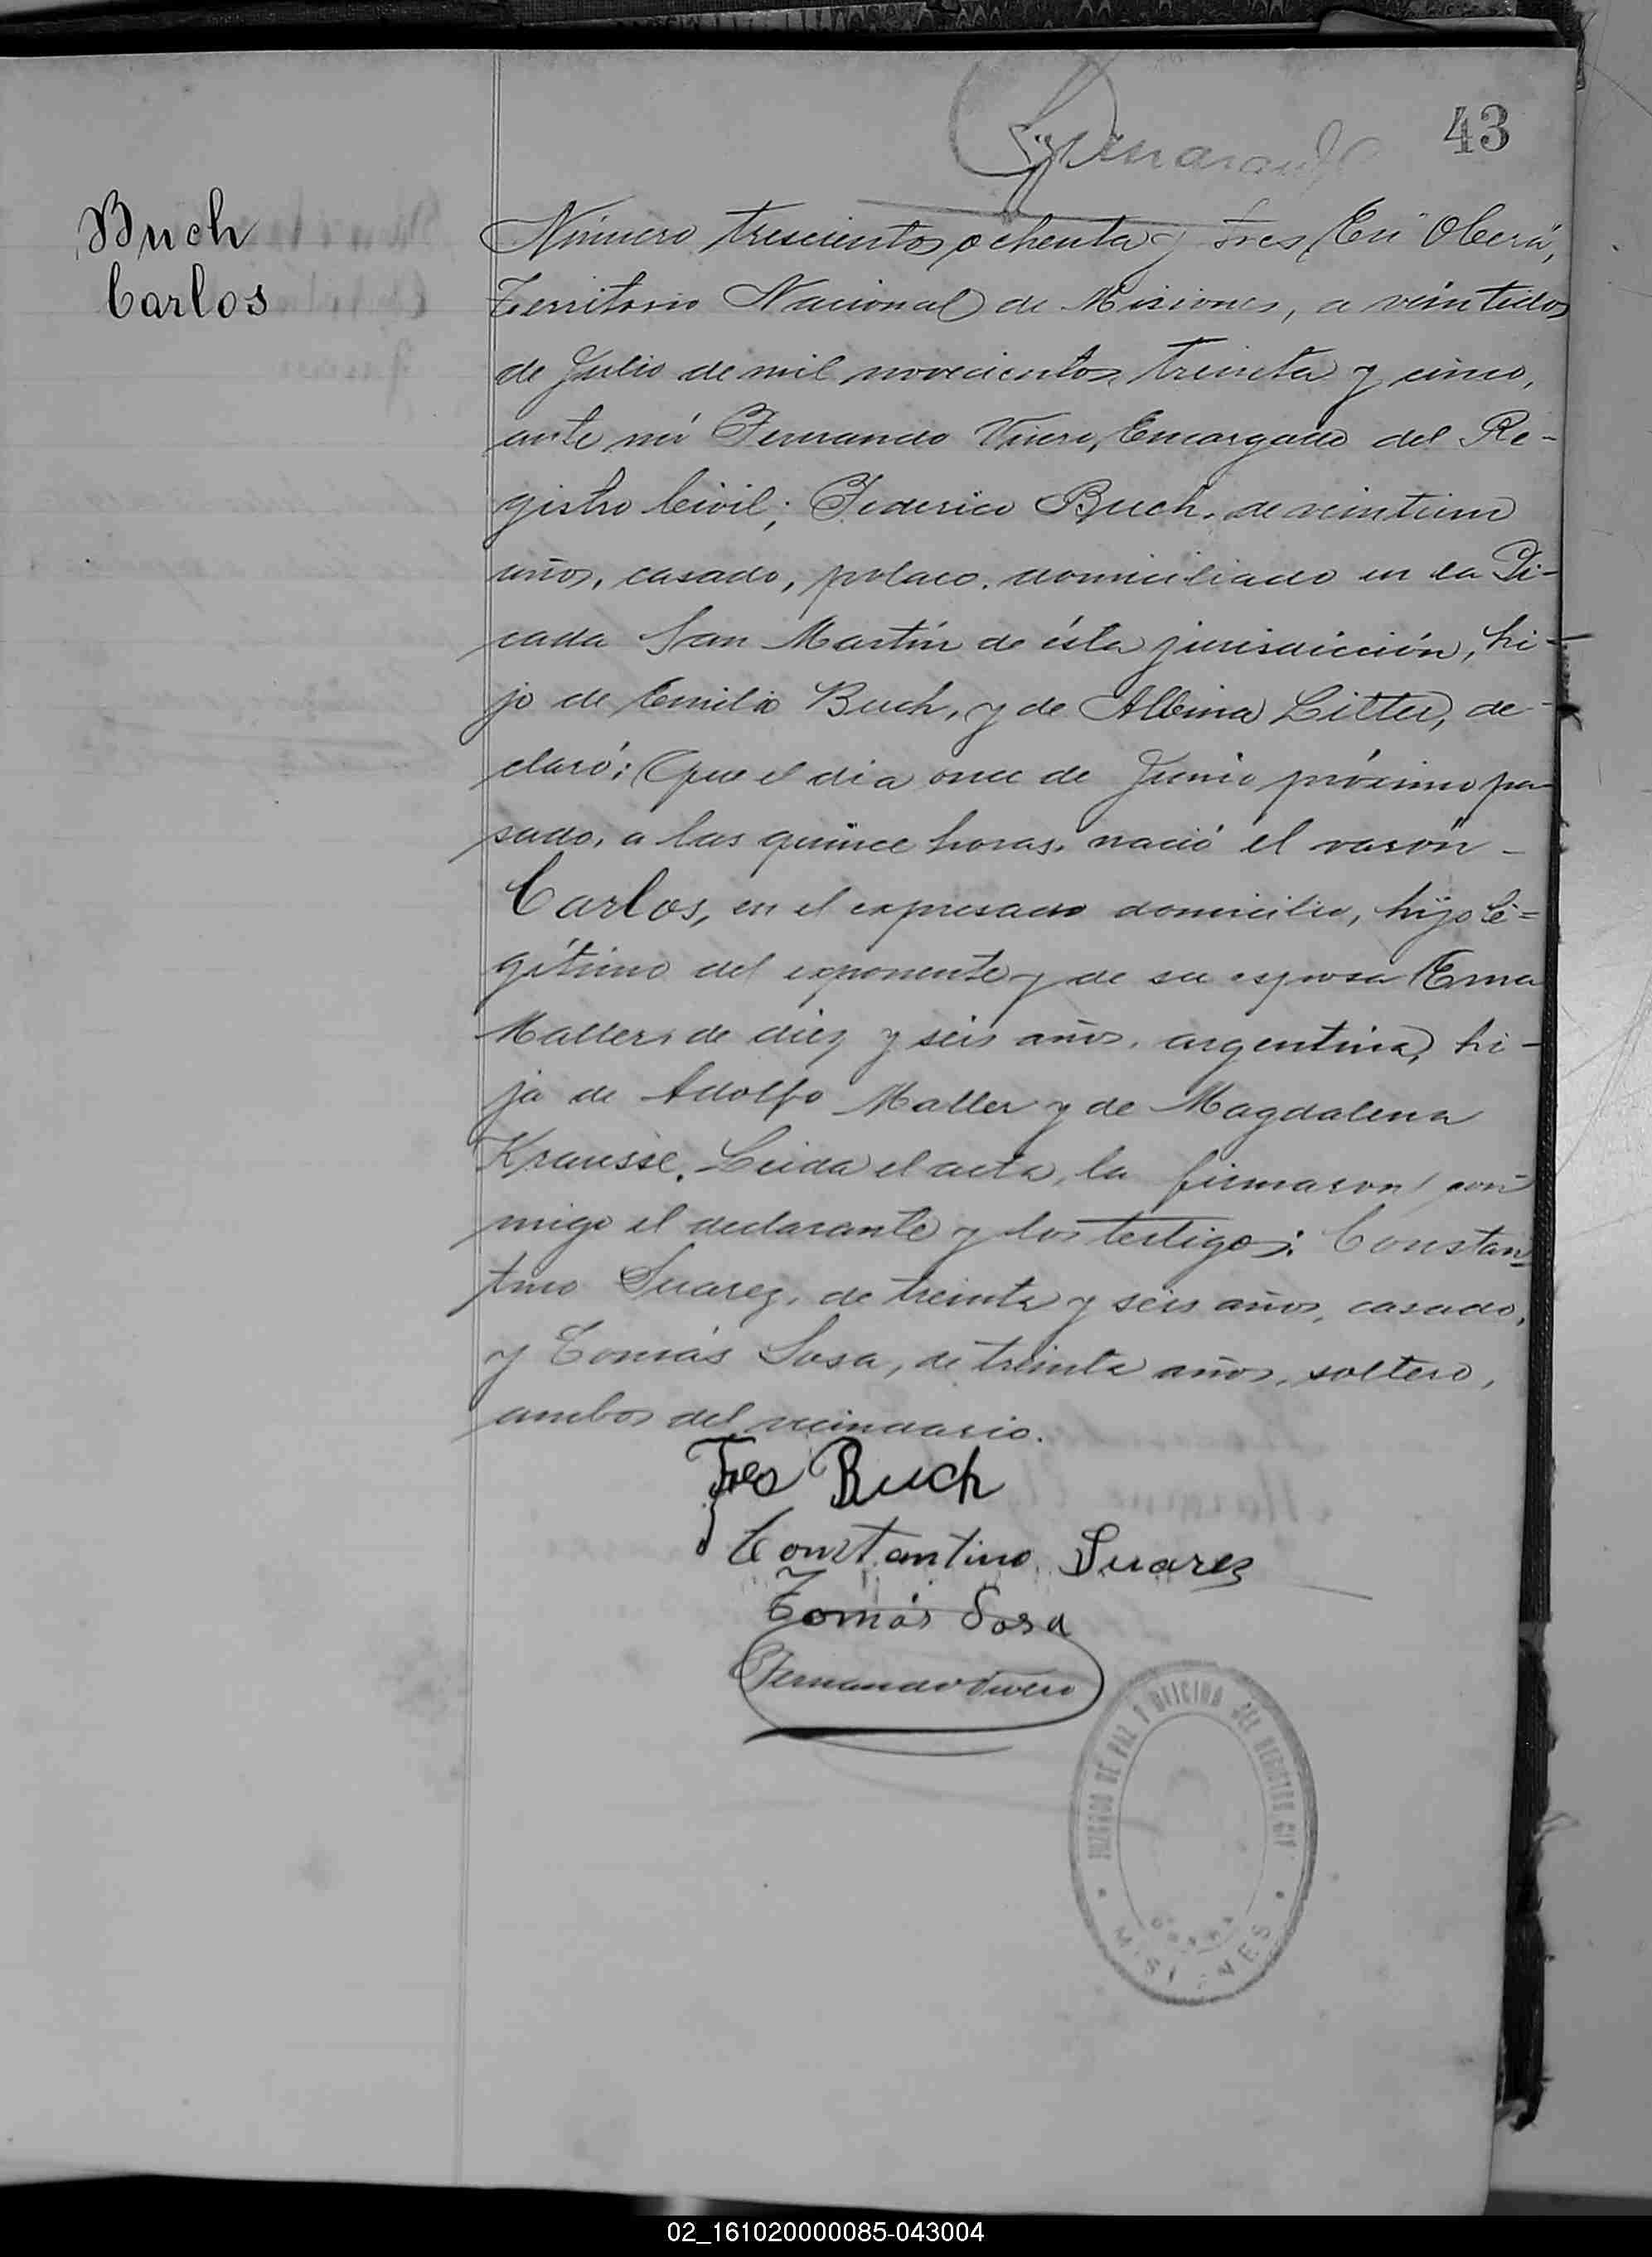 43
Buch
Carlos
Número trescientos ochenta y tres En Oberá,
Territorio Nacional de Misiones, a veintidos
de Julio de mil novecientos treinta y cinco,
ante mí Fernando Vivero, Encargado del Re-
gistro Civil; Federico Buch, de veintiun
años, casado, polaco, domiciliado en la Pi-
cada San Martín de ésta jurisdicción, hi-
jo de Emilio Buch, y de Albina Litter, de-
claró: Que el dia once de Junio próximo pa-
sado, a las quince horas, nació el varón -
Carlos, en el expresado domicilio, hijo lé=
gítimo del exponente y de su esposa Ema
Maller, de diez y seis años, argentina, hi-
ja de Adolfo Maller y de Magdalena
Krausse. Leida el acta, la firmaron con
migo el declarante y los testigos: Constan
tino Suarez, de treinta y seis años, casado,
y Tomás Sosa, de treinta años, soltero,
ambos del vecindario.
Buch
Constantino Suarez
Tomás Sosa
Fernando Vivero
JUZGADO DE PAZ Y OFICINA DEL REGISTRO CIV
MISIONES
02_161020000085-043004